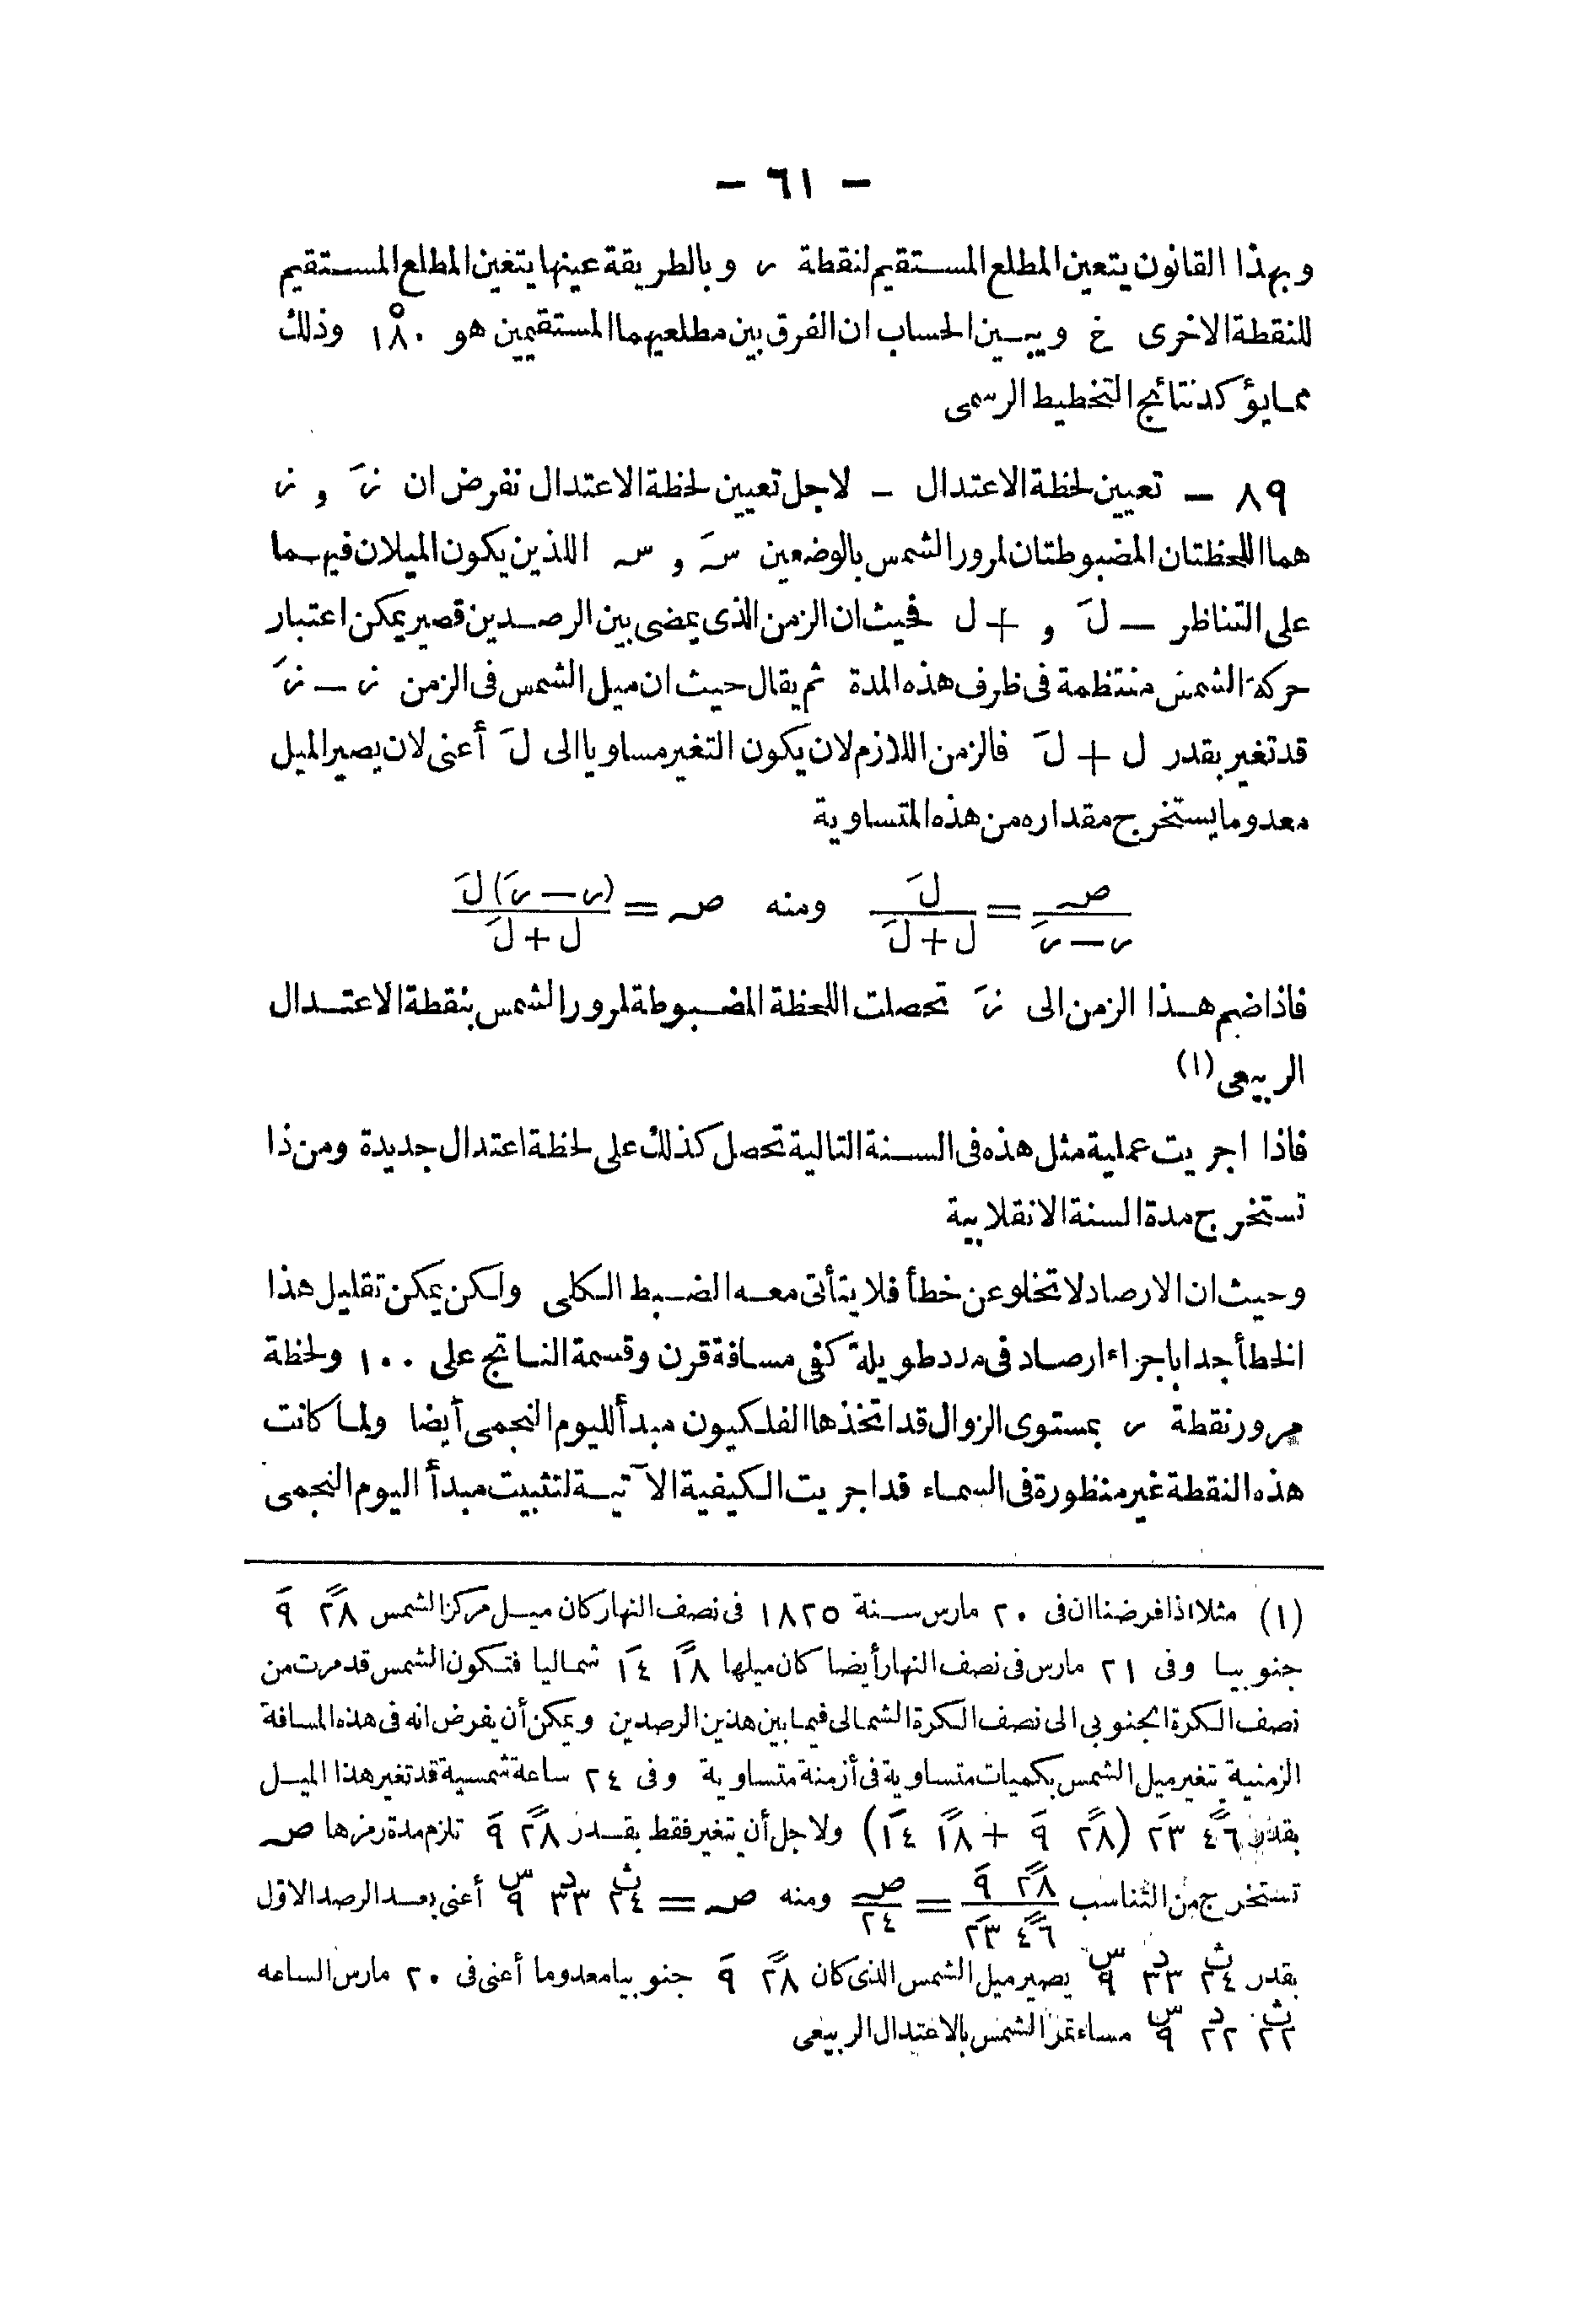 — ٦١ —
وبهذا القانون يتعين المطلع المستقيم لنقطة ر وبالطريقة عينها يتعين المطلع المستقيم
للنقطة الاخرى خ ويبين الحساب ان الفرق بين مطلعيهما المستقيمين هو ١٨٠° وذلك
مما يؤكد نتائج التخطيط الرسمى
٨٩ — تعيين لحظة الاعتدال — لاجل تعيين لحظة الاعتدال نفرض ان زَ , ز
هما اللحظتان المضبوطتان لمرور الشمس بالوضعين سَ , س اللذين يكون الميلان فيهما
على التناظر — لَ , + ل فحيث ان الزمن الذى يمضى بين الرصدين قصير يمكن اعتبار
حركة الشمس منتظمة فى ظرف هذه المدة ثم يقال حيث ان ميل الشمس فى الزمن ز — زَ
قد تغير بقدر ل + لَ فالزمن اللازم لان يكون التغير مساويا الى لَ أعنى لان يصير الميل
معدوما يستخرج مقداره من هذه المتساوية
ص/(ر — رَ) = لَ/(ل + لَ) ومنه ص = (ر — رَ) لَ/(ل + لَ)
فاذا ضم هذا الزمن الى زَ تحصلت اللحظة المضبوطة لمرور الشمس بنقطة الاعتدال
الربيعى (١)
فاذا اجريت عملية مثل هذه فى السنة التالية تحصل كذلك على لحظة اعتدال جديدة ومن ذا
تستخرج مدة السنة الانقلابية
وحيث ان الارصاد لا تخلو عن خطأ فلا يتأتى معه الضبط الكلى ولكن يمكن تقليل هذا
الخطأ جدا باجراء ارصاد فى مدد طويلة كفى مسافة قرن وقسمة الناتج على ١٠٠ ولحظة
مرور نقطة ر بمستوى الزوال قد اتخذها الفلكيون مبدأ لليوم النجمى أيضا ولما كانت
هذه النقطة غير منظورة فى السماء قد اجريت الكيفية الآتية لتثبيت مبدأ اليوم النجمى
(١) مثلا اذا فرضنا ان فى ٢٠ مارس سنة ١٨٢٥ فى نصف النهار كان ميل مركز الشمس ٢٨ً ٩َ
جنوبيا وفى ٢١ مارس فى نصف النهار أيضا كان ميلها ١٨ً ١٤َ شماليا فتكون الشمس قد مرت من
نصف الكرة الجنوبى الى نصف الكرة الشمالى فيما بين هذين الرصدين ويمكن أن يفرض انه فى هذه المسافة
الزمنية يتغير ميل الشمس بكميات متساوية فى أزمنة متساوية وفى ٢٤ ساعة شمسية قد تغير هذا الميل
بقدر ٤٦ً ٢٣َ (٢٨ً ٩َ + ١٨ً ١٤َ) ولاجل أن يتغير فقط بقدر ٢٨ً ٩َ تلزم مدة رمزها ص
تستخرج من التناسب ٢٨ً ٩َ/٤٦ً ٢٣َ = ص/٢٤ ومنه ص = ٢٤ث ٣٣د ٩س أعنى بعد الرصد الاول
بقدر ٢٤ث ٣٣د ٩س يصير ميل الشمس الذى كان ٢٨ً ٩َ جنوبيا معدوما أعنى فى ٢٠ مارس الساعه
٢٢ث ٢٢د ٩س مساء تمر الشمس بالاعتدال الربيعى